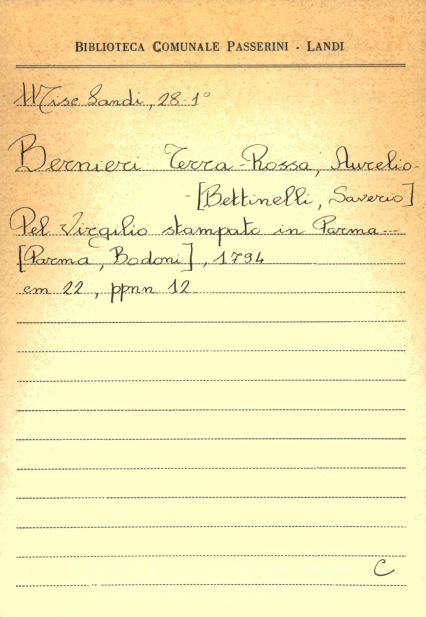 BIBLIOTECA COMUNALE PASSERINI - LANDI
Misc Landi, 28-1°
Bernieri Terra-Rossa, Aurelio-
-[Bettinelli, Saverio]
Pel Virgilio stampato in Parma---
[Parma, Bodoni], 1794
cm 22, ppnn 12
C